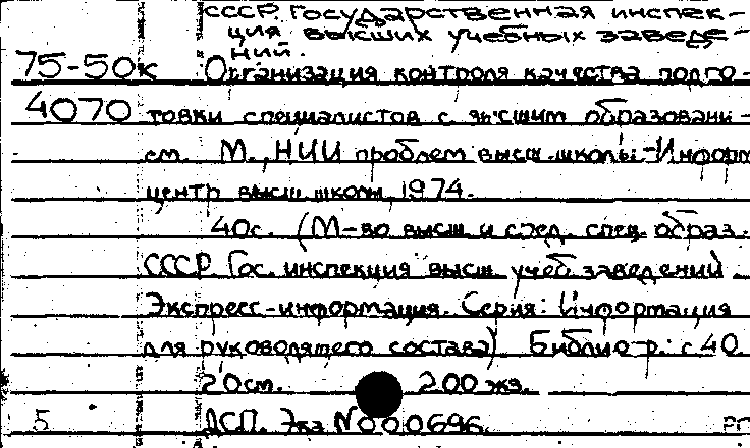 СССР. Государственная инспек-
ция высших учебных заведе-
ний.
75-50к Организация контроля качества подго-
4070 товки специалистов с высшим образовани-
ем. М., НИИ проблем высш. школы-Информ
центр высш. школы, 1974.
40с. (М-во высш. и сред. спец. образ.
СССР Гос. инспекция высш. учеб. заведений.
Экспресс-информация. Серия: Информация
для руководящего состава) Библиогр.: с 40
20см. 200 экз.
5 ДСП. Экз №000696.